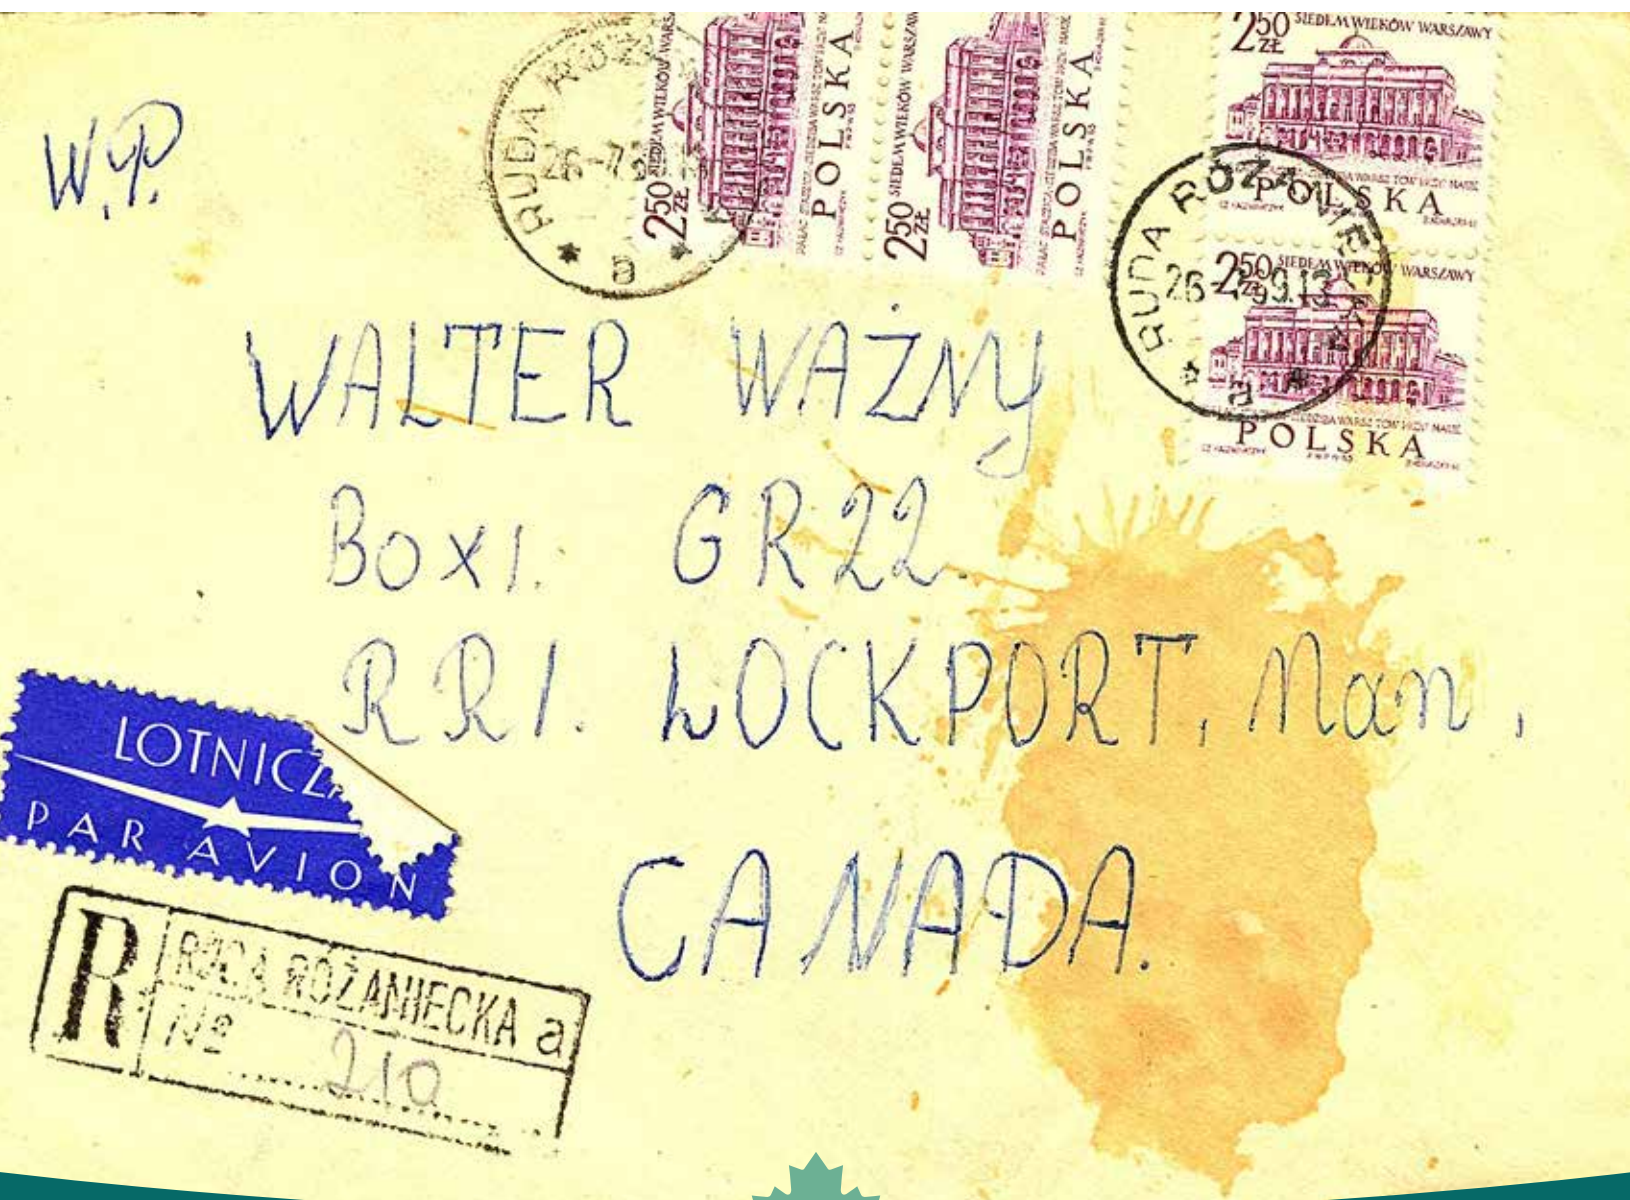 W.P.
RUDA RÓŻ
26-7
a
2⁵⁰ ZŁ
SIEDEM WIEKÓW WARSZAWY
POLSKA
2⁵⁰ ZŁ
SIEDEM WIEKÓW WARSZAWY
POLSKA
2⁵⁰ ZŁ
SIEDEM WIEKÓW WARSZAWY
POLSKA
RUDA RÓŻANIECKA
a
2⁵⁰ ZŁ
SIEDEM WIEKÓW WARSZAWY
POLSKA
WALTER WAŻNY
Box 1. GR 22.
RR1. LOCKPORT, Man,
CANADA.
LOTNICZA
PAR AVION
R
RUDA RÓŻANIECKA a
Nº 210